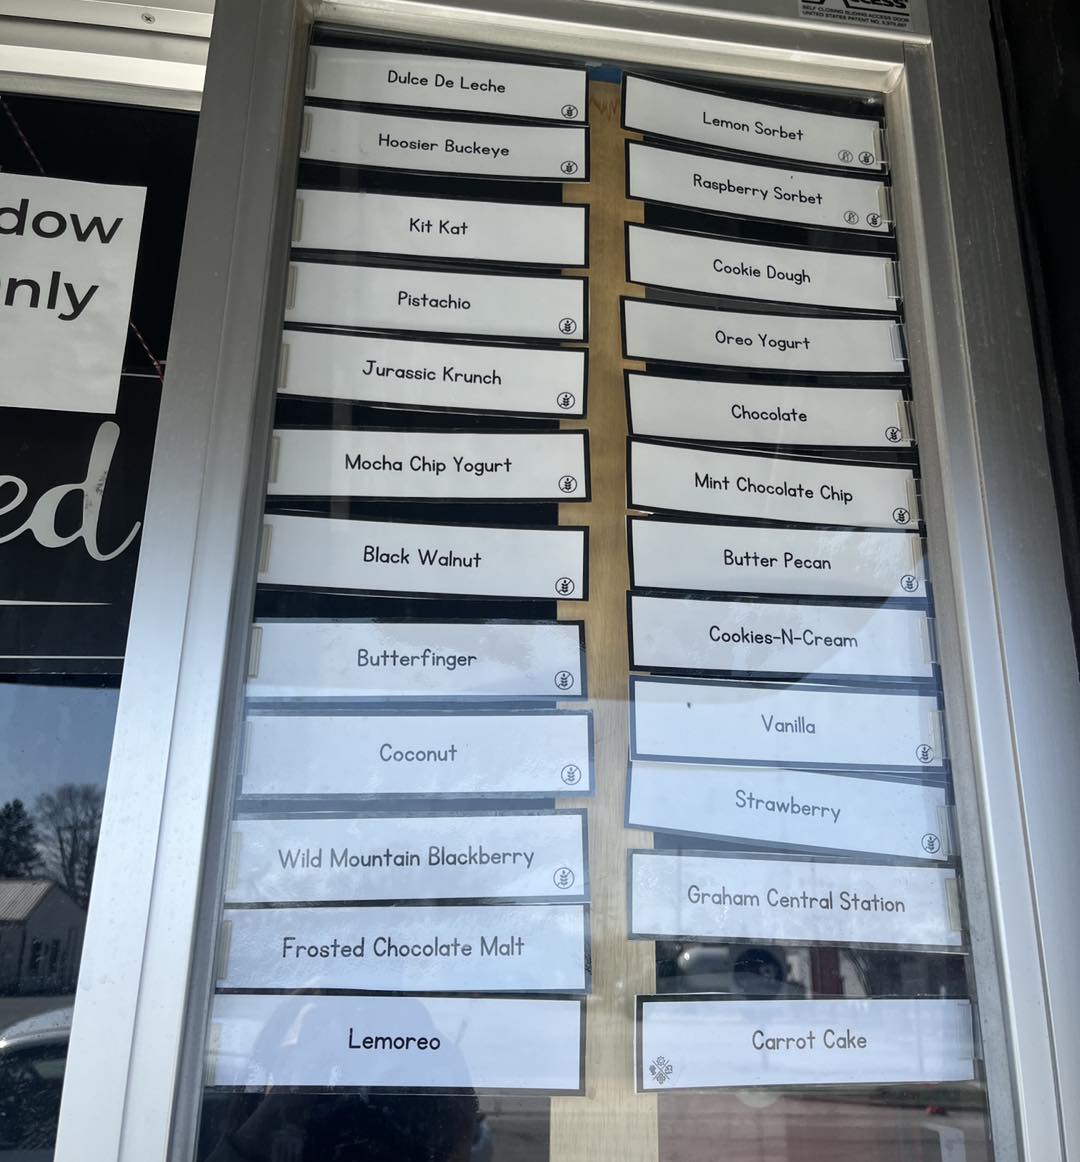 SELF CLOSING SLIDING ACCESS DOOR
dow
nly
ed
Dulce De Leche
Hoosier Buckeye
Kit Kat
Pistachio
Jurassic Krunch
Mocha Chip Yogurt
Black Walnut
Butterfinger
Coconut
Wild Mountain Blackberry
Frosted Chocolate Malt
Lemoreo
Lemon Sorbet
Raspberry Sorbet
Cookie Dough
Oreo Yogurt
Chocolate
Mint Chocolate Chip
Butter Pecan
Cookies-N-Cream
Vanilla
Strawberry
Graham Central Station
Carrot Cake